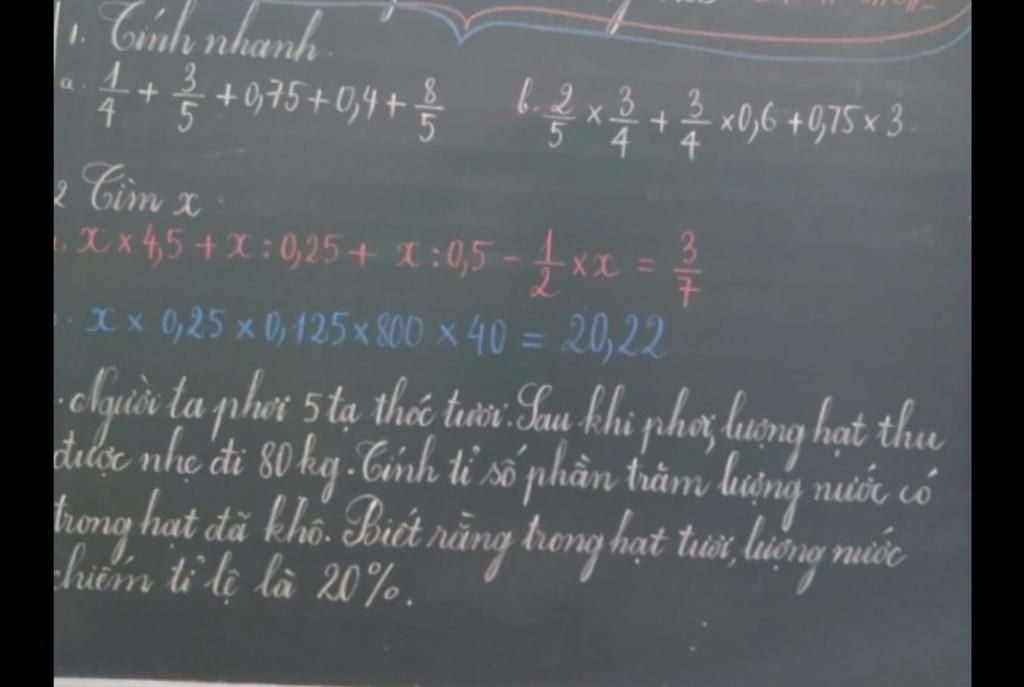 1. Tính nhanh.
a. 1/4 + 3/5 + 0,75 + 0,4 + 8/5 b. 2/5 × 3/4 + 3/4 × 0,6 + 0,75 × 3
2 Tìm x
. x × 4,5 + x : 0,25 + x : 0,5 - 1/2 × x = 3/7
. x × 0,25 × 0,125 × 800 × 40 = 20,22
. Người ta phơi 5 tạ thóc tươi. Sau khi phơi, lượng hạt thu
được nhẹ đi 80kg. Tính tỉ số phần trăm lượng nước có
trong hạt đã khô. Biết rằng trong hạt tươi, lượng nước
chiếm tỉ lệ là 20%.